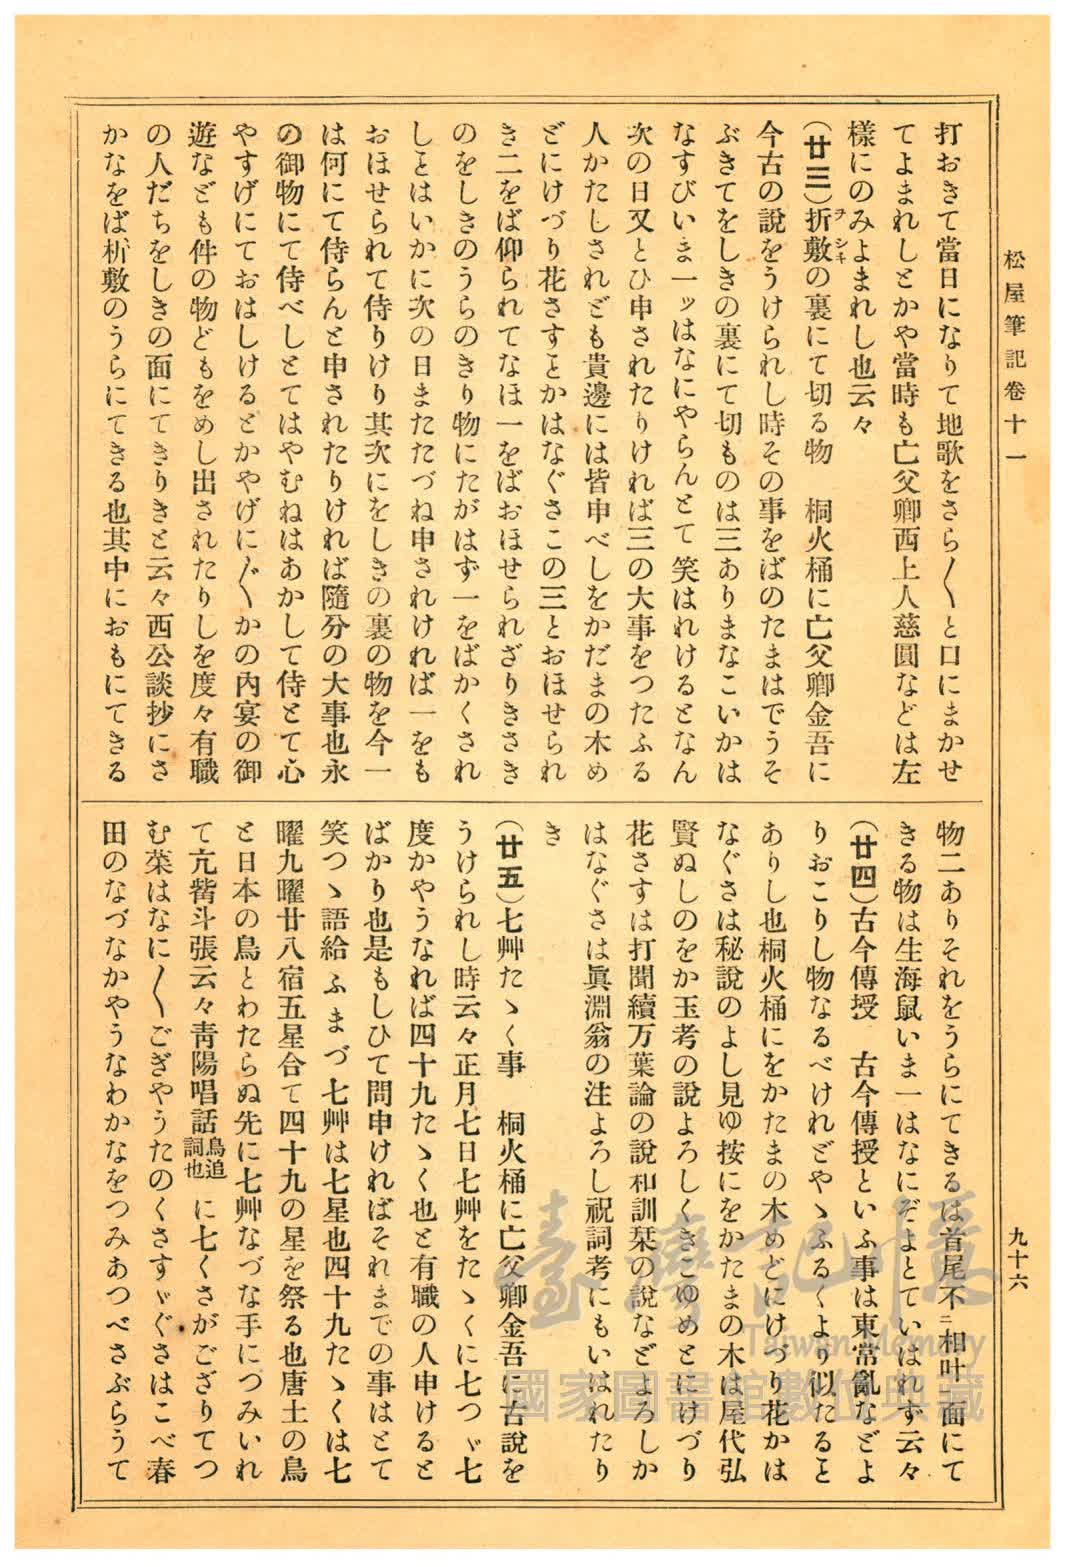 松屋筆記卷十一
打おきて當日になりて地歌をさら〱と口にまかせ
てよまれしとかや當時も亡父卿西上人慈圓などは左
樣にのみよまれし也云々
(廿三)折敷ヲシキの裏にて切る物　桐火桶に亡父卿金吾に
今古の說をうけられし時その事をばのたまはでうそ
ぶきてをしきの裏にて切ものは三ありまなこいかは
なすびいま一ッはなにやらんとて笑はれけるとなん
次の日又とひ申されたりければ三の大事をつたふる
人かたしされども貴邊には皆申べしをかだまの木め
どにけづり花さすヿかはなぐさこの三とおほせられ
き二をば仰られてなほ一をばおほせられざりきさき
のをしきのうらのきり物にたがはず一をばかくされ
しヿはいかに次の日またたづね申されければ一をも
おほせられて侍りけり其次にをしきの裏の物を今一
は何にて侍らんと申されたりければ隨分の大事也永
の御物にて侍べしとてはやむねはあかして侍とて心
やすげにておはしけるとかやげに〲かの內宴の御
遊なども件の物どもをめし出されたりしを度々有職
の人だちをしきの面にてきりきと云々西公談抄にさ
かなをば折敷のうらにてきる也其中におもにてきる
物二ありそれをうらにてきるは首尾不ニ相叶一面にて
きる物は生海鼠いま一はなにぞよとていはれず云々
(廿四)古今傳授　古今傳授といふ事は東常亂などよ
りおこりし物なるべけれどやゝふるくより似たるヿ
ありし也桐火桶にをかたまの木めどにけづり花かは
なぐさは秘說のよし見ゆ按にをかたまの木は屋代弘
賢ぬしのをか玉考の說よろしくきこゆめとにけづり
花さすは打聞續万葉論の說和訓栞の說などよろしか
はなぐさは眞淵翁の注よろし祝詞考にもいはれたり
き
(廿五)七艸たゝく事　桐火桶に亡父卿金吾に古說を
うけられし時云々正月七日七艸をたゝくに七つゞ七
度かやうなれば四十九たゝく也と有職の人申けると
ばかり也是もしひて問申ければそれまでの事はとて
笑つゝ語給ふまづ七艸は七星也四十九たゝくは七
曜九曜廿八宿五星合て四十九の星を祭る也唐土の鳥
と日本の鳥とわたらぬ先に七艸なづな手につみいれ
て亢觜斗張云々靑陽唱話鳥追詞也に七くさがござりてつ
む菜はなに〱ごぎやうたのくさすゞぐさはこべ春
田のなづなかやうなわかなをつみあつべさぶらうて
九十六
臺灣記憶
Taiwan Memory
國家圖書館數位典藏